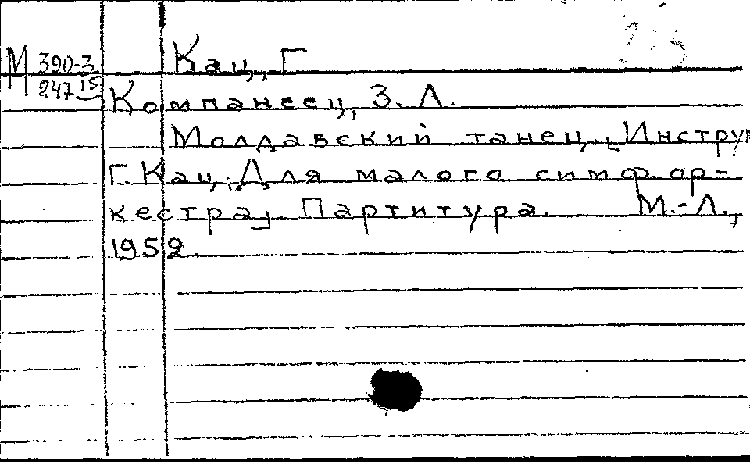 М 390-3 Кац, Г
247 15 Компанеец, З. Л.
Молдавский танец. [Инстру
Г. Кац. Для малого симф. ор-
кестра]. Партитура. М.-Л.,
1952.